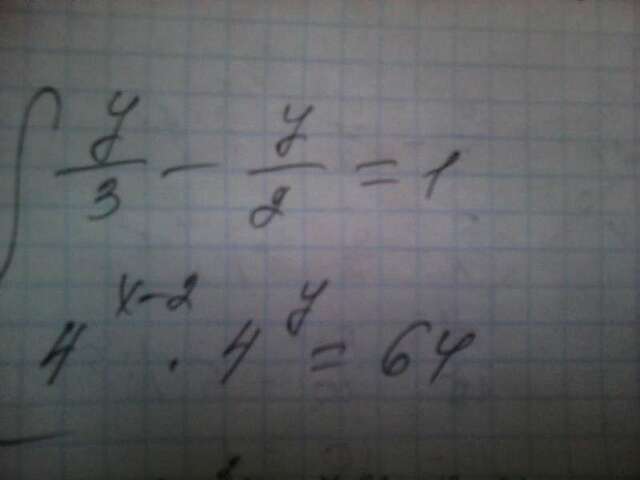 y/3 - y/2 = 1
4^(x-2) · 4^y = 64